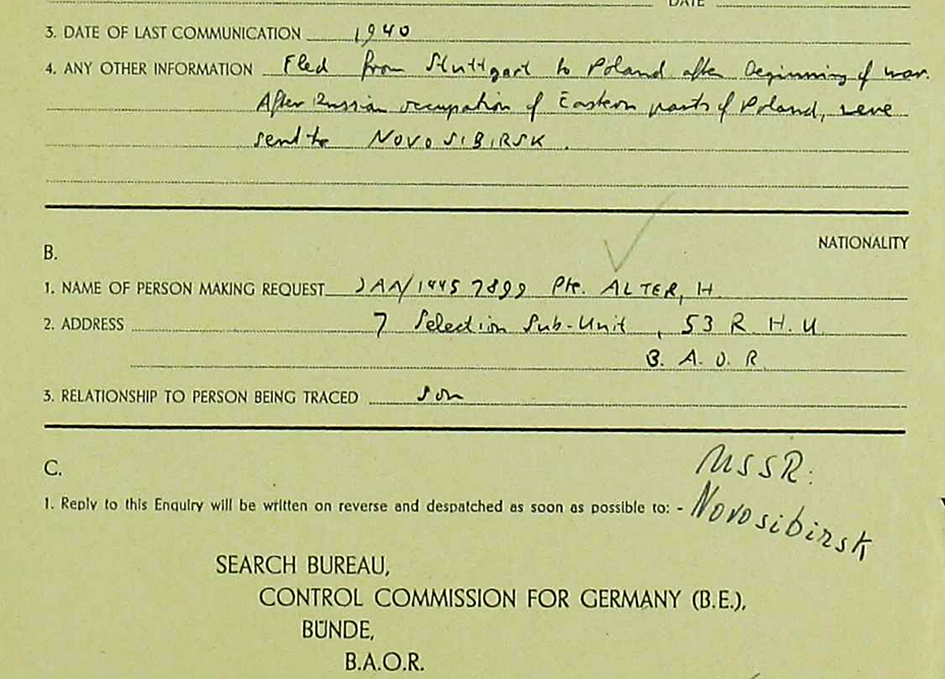 DATE
3. DATE OF LAST COMMUNICATION 1940
4. ANY OTHER INFORMATION Fled from Stuttgart to Poland after beginning of war.
After Russian occupation of Eastern parts of Poland, were
sent to NOVOSIBIRSK.
NATIONALITY
B.
1. NAME OF PERSON MAKING REQUEST 14457899 Pte. ALTER, H.
2. ADDRESS 7 Selection Sub-Unit, 53 R.H.U.
B.A.O.R.
3. RELATIONSHIP TO PERSON BEING TRACED son
USSR:
C.
1. Reply to this Enquiry will be written on reverse and despatched as soon as possible to: - Novosibirsk
SEARCH BUREAU,
CONTROL COMMISSION FOR GERMANY (B.E.),
BÜNDE,
B.A.O.R.